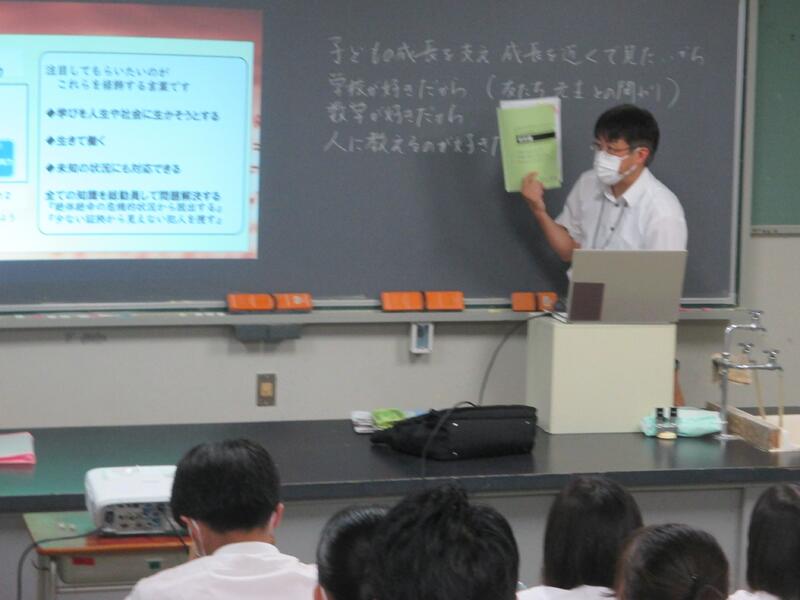 注目してもらいたいのが
これらを修飾する言葉です
◆学びを人生や社会に生かそうとする
◆生きて働く
◆未知の状況にも対応できる
全ての知識を総動員して問題解決する
『絶体絶命の危機的状況から脱出する』
『少ない証拠から見えない犯人を捜す』
子どもの成長を支え 成長を近くで見た‥から
学校が好きだから (友だち 先生との関わり)
数学が好きだから
人に教えるのが好きだ